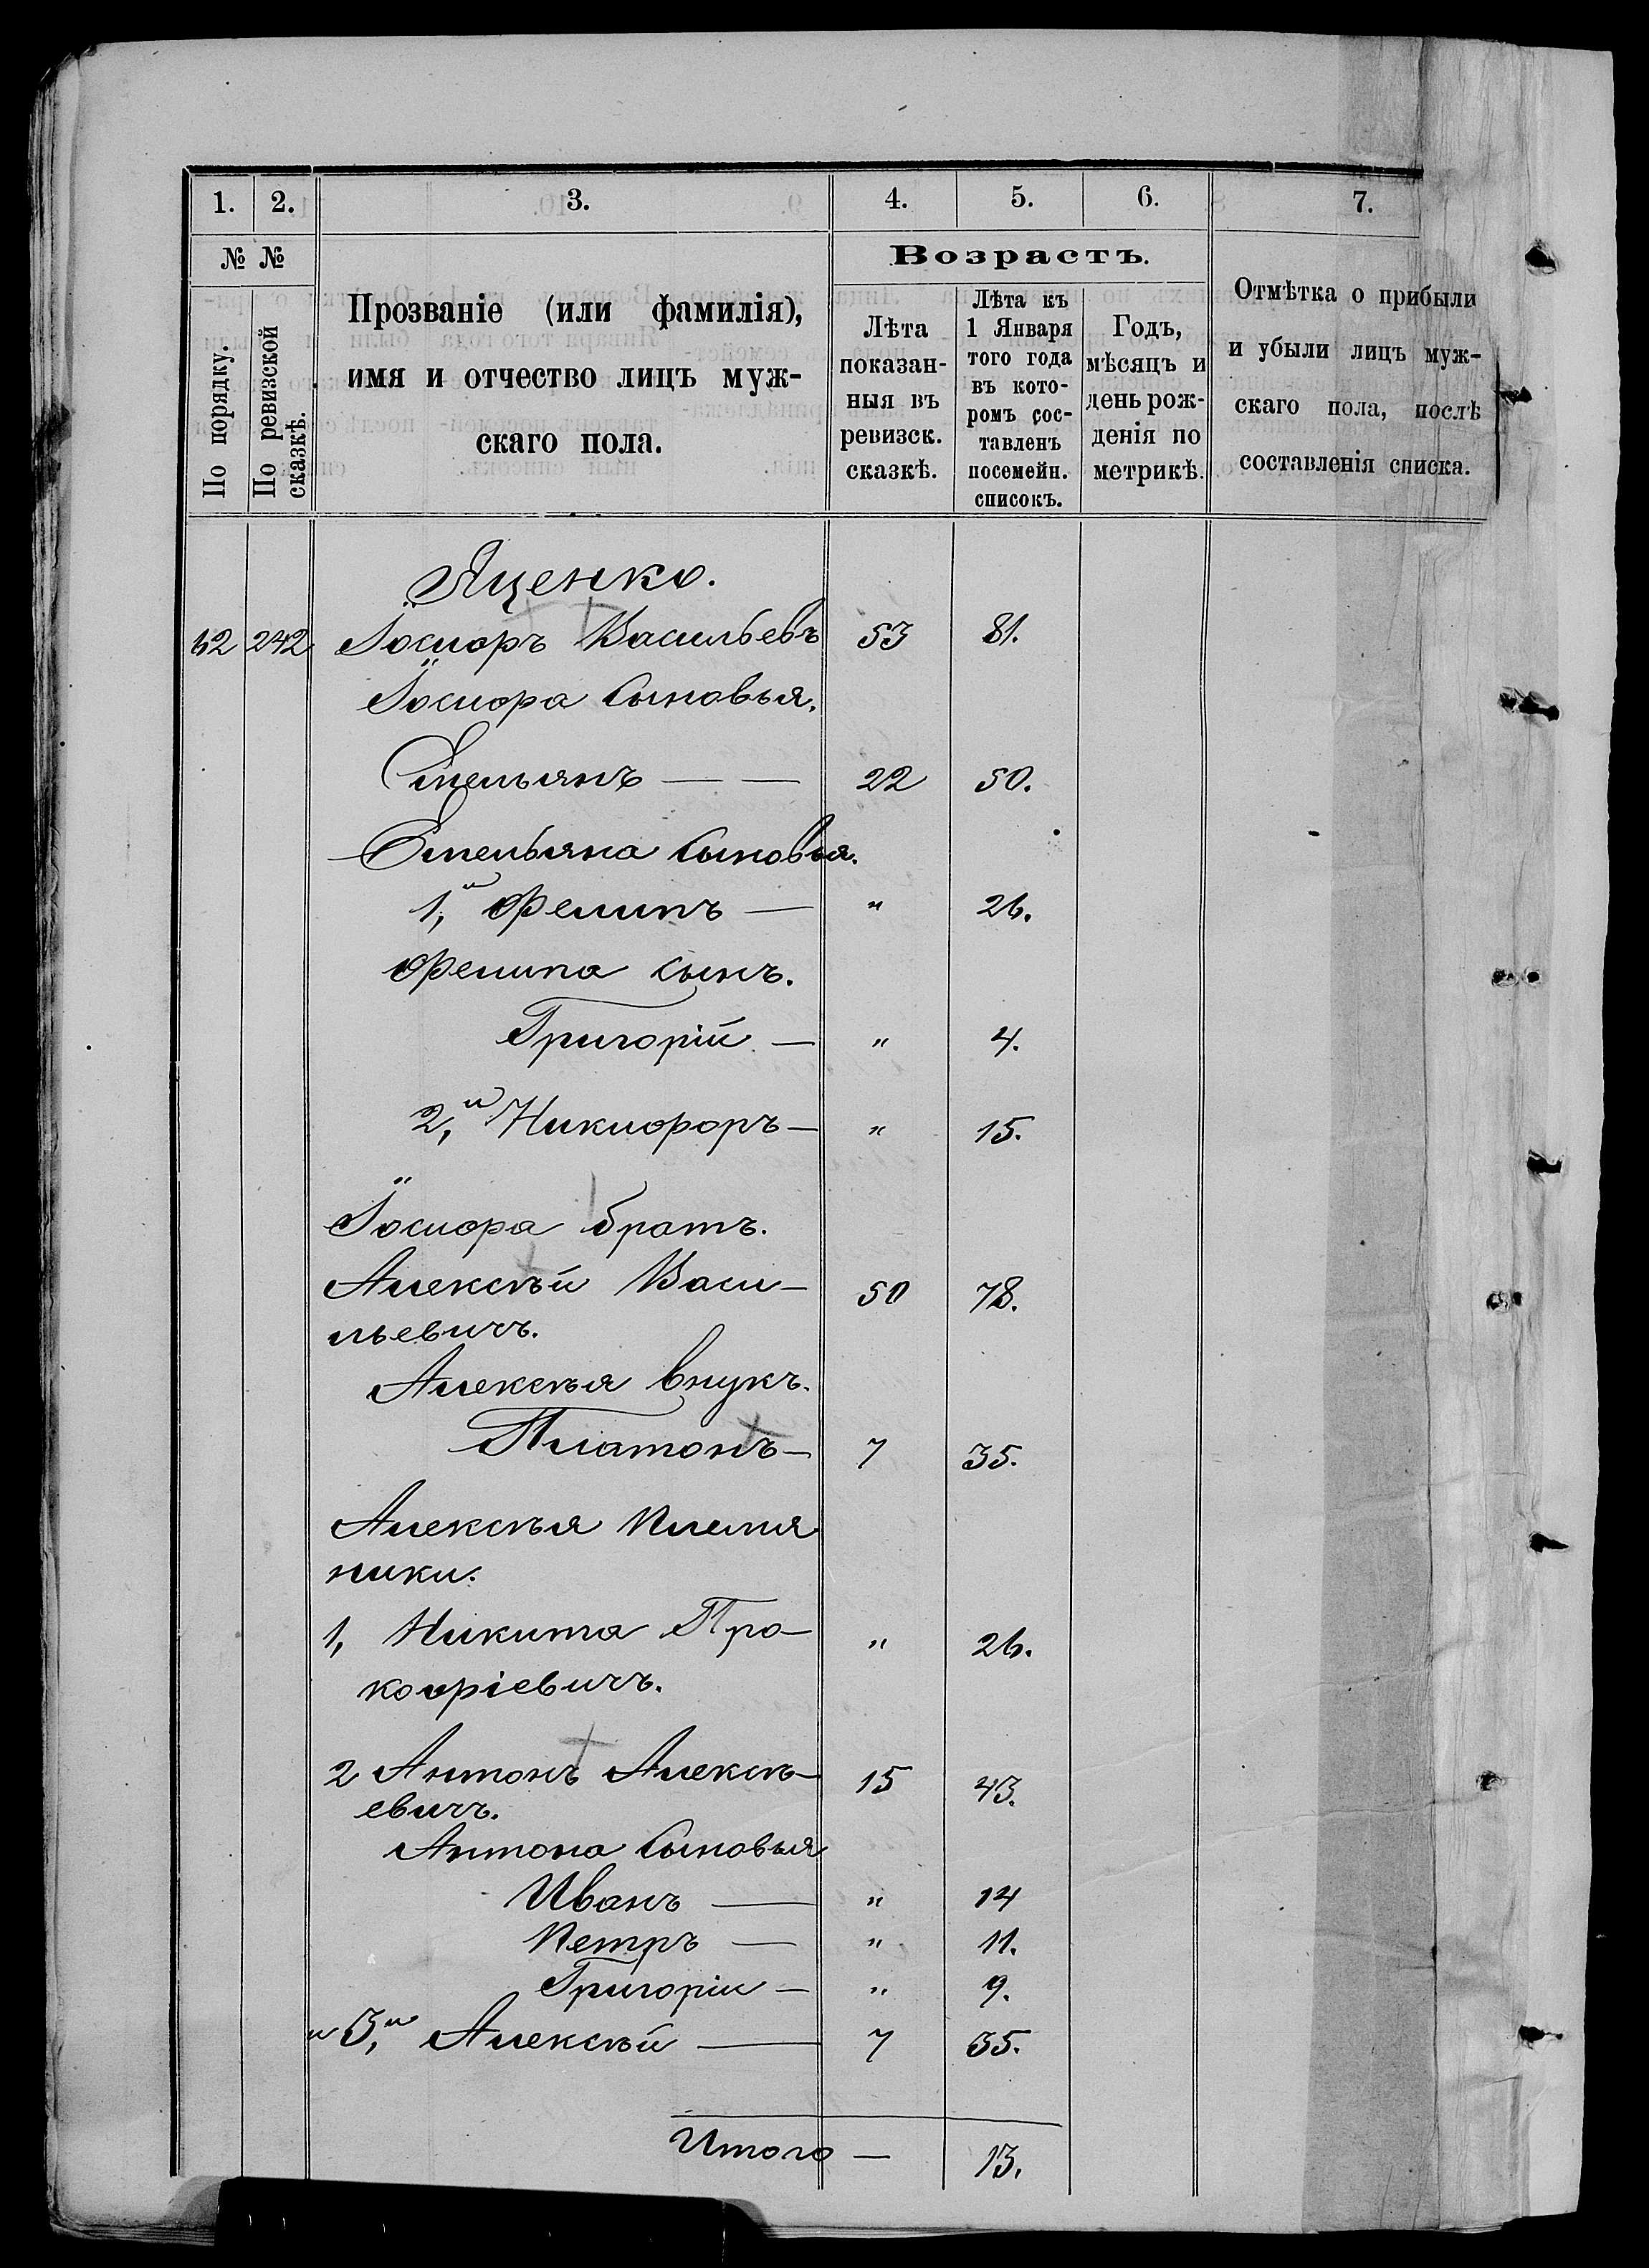 1. 2. 3. 4. 5. 6. 7.
№ №
По порядку.
По ревизской сказкѣ.
Прозваніе (или фамилія),
имя и отчество лицъ муж-
скаго пола.
Возрастъ.
Лѣта
показан-
ныя въ
ревизск.
сказкѣ.
Лѣта къ
1 Января
того года
въ кото-
ромъ сос-
тавленъ
посемейн.
списокъ.
Годъ,
мѣсяцъ и
день рож-
денія по
метрикѣ.
Отмѣтка о прибыли
и убыли лицъ муж-
скаго пола, послѣ
составленія списка.
Яценко.
62 242 Іосифъ Васильевъ 53 81.
Іосифа сыновья.
Емельянъ — — 22 50.
Емельяна сыновья.
1,й Фелипъ — " 26.
Фелипа сынъ.
Григорій — " 4.
2,й Никифоръ — " 15.
Іосифа братъ.
Алексѣй Васи- 50 78.
льевичъ.
Алексѣя внукъ.
Платонъ — 7 35.
Алексѣя племя
ники.
1, Никита Про- " 26.
кофіевичъ.
2 Антонъ Алексѣ- 15 43.
евичъ.
Антона сыновья
Иванъ — " 14
Петръ — " 11.
Григорій — " 9.
и 3,й Алексѣй — 7 35.
Итого — 13.